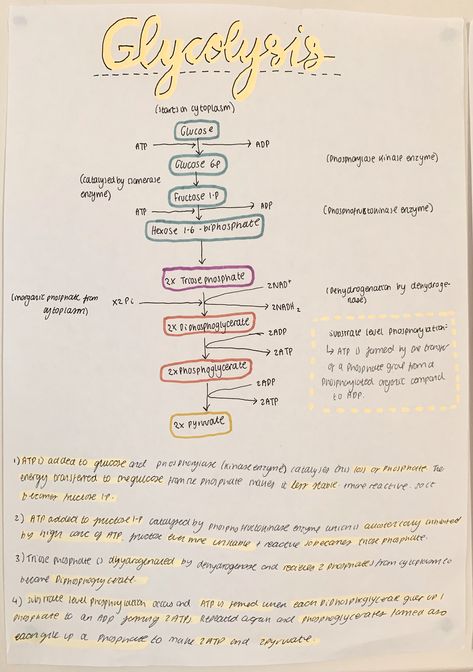 Glycolysis
(starts in cytoplasm)
Glucose
ATP
ADP
(Phosphorylase kinase enzyme)
Glucose 6-P
(catalysed by isomerase
enzyme)
Fructose 1-P
ATP
ADP
(Phosphofructokinase enzyme)
Hexose 1-6-biphosphate
2x Triose phosphate
2NAD+
(Dehydrogenation by dehydroge-
nase)
(inorganic phosphate from
cytoplasm)
x2 Pi
2NADH2
2x Diphosphoglycerate
2ADP
2ATP
2x Phosphoglycerate
2ADP
2ATP
2x pyruvate
Substrate level phosphorylation:
↳ ATP is formed by the transfer
of a phosphate group from a
phosphorylated organic compound
to ADP.
1) ATP is added to glucose and phosphorylase (kinase enzyme) catalyses this loss of phosphate. The
energy transferred to the glucose from the phosphate makes it less stable + more reactive. so it
becomes fructose 1-P.
2) ATP added to fructose 1-P catalysed by phosphofructokinase enzyme which is allosterically inhibited
by high conc of ATP. fructose even more unstable + reactive so becomes triose phosphate.
3) Triose phosphate is dehydrogenated by dehydrogenase and receives 2 phosphates from cytoplasm to
become Diphosphoglycerate.
4) substrate level phosphorylation occurs and ATP is formed when each Diphosphoglycerate gives up 1
phosphate to an ADP forming 2ATPs. Repeated again and phosphoglycerates formed also
each give up a phosphate to make 2ATP and 2pyruvate.